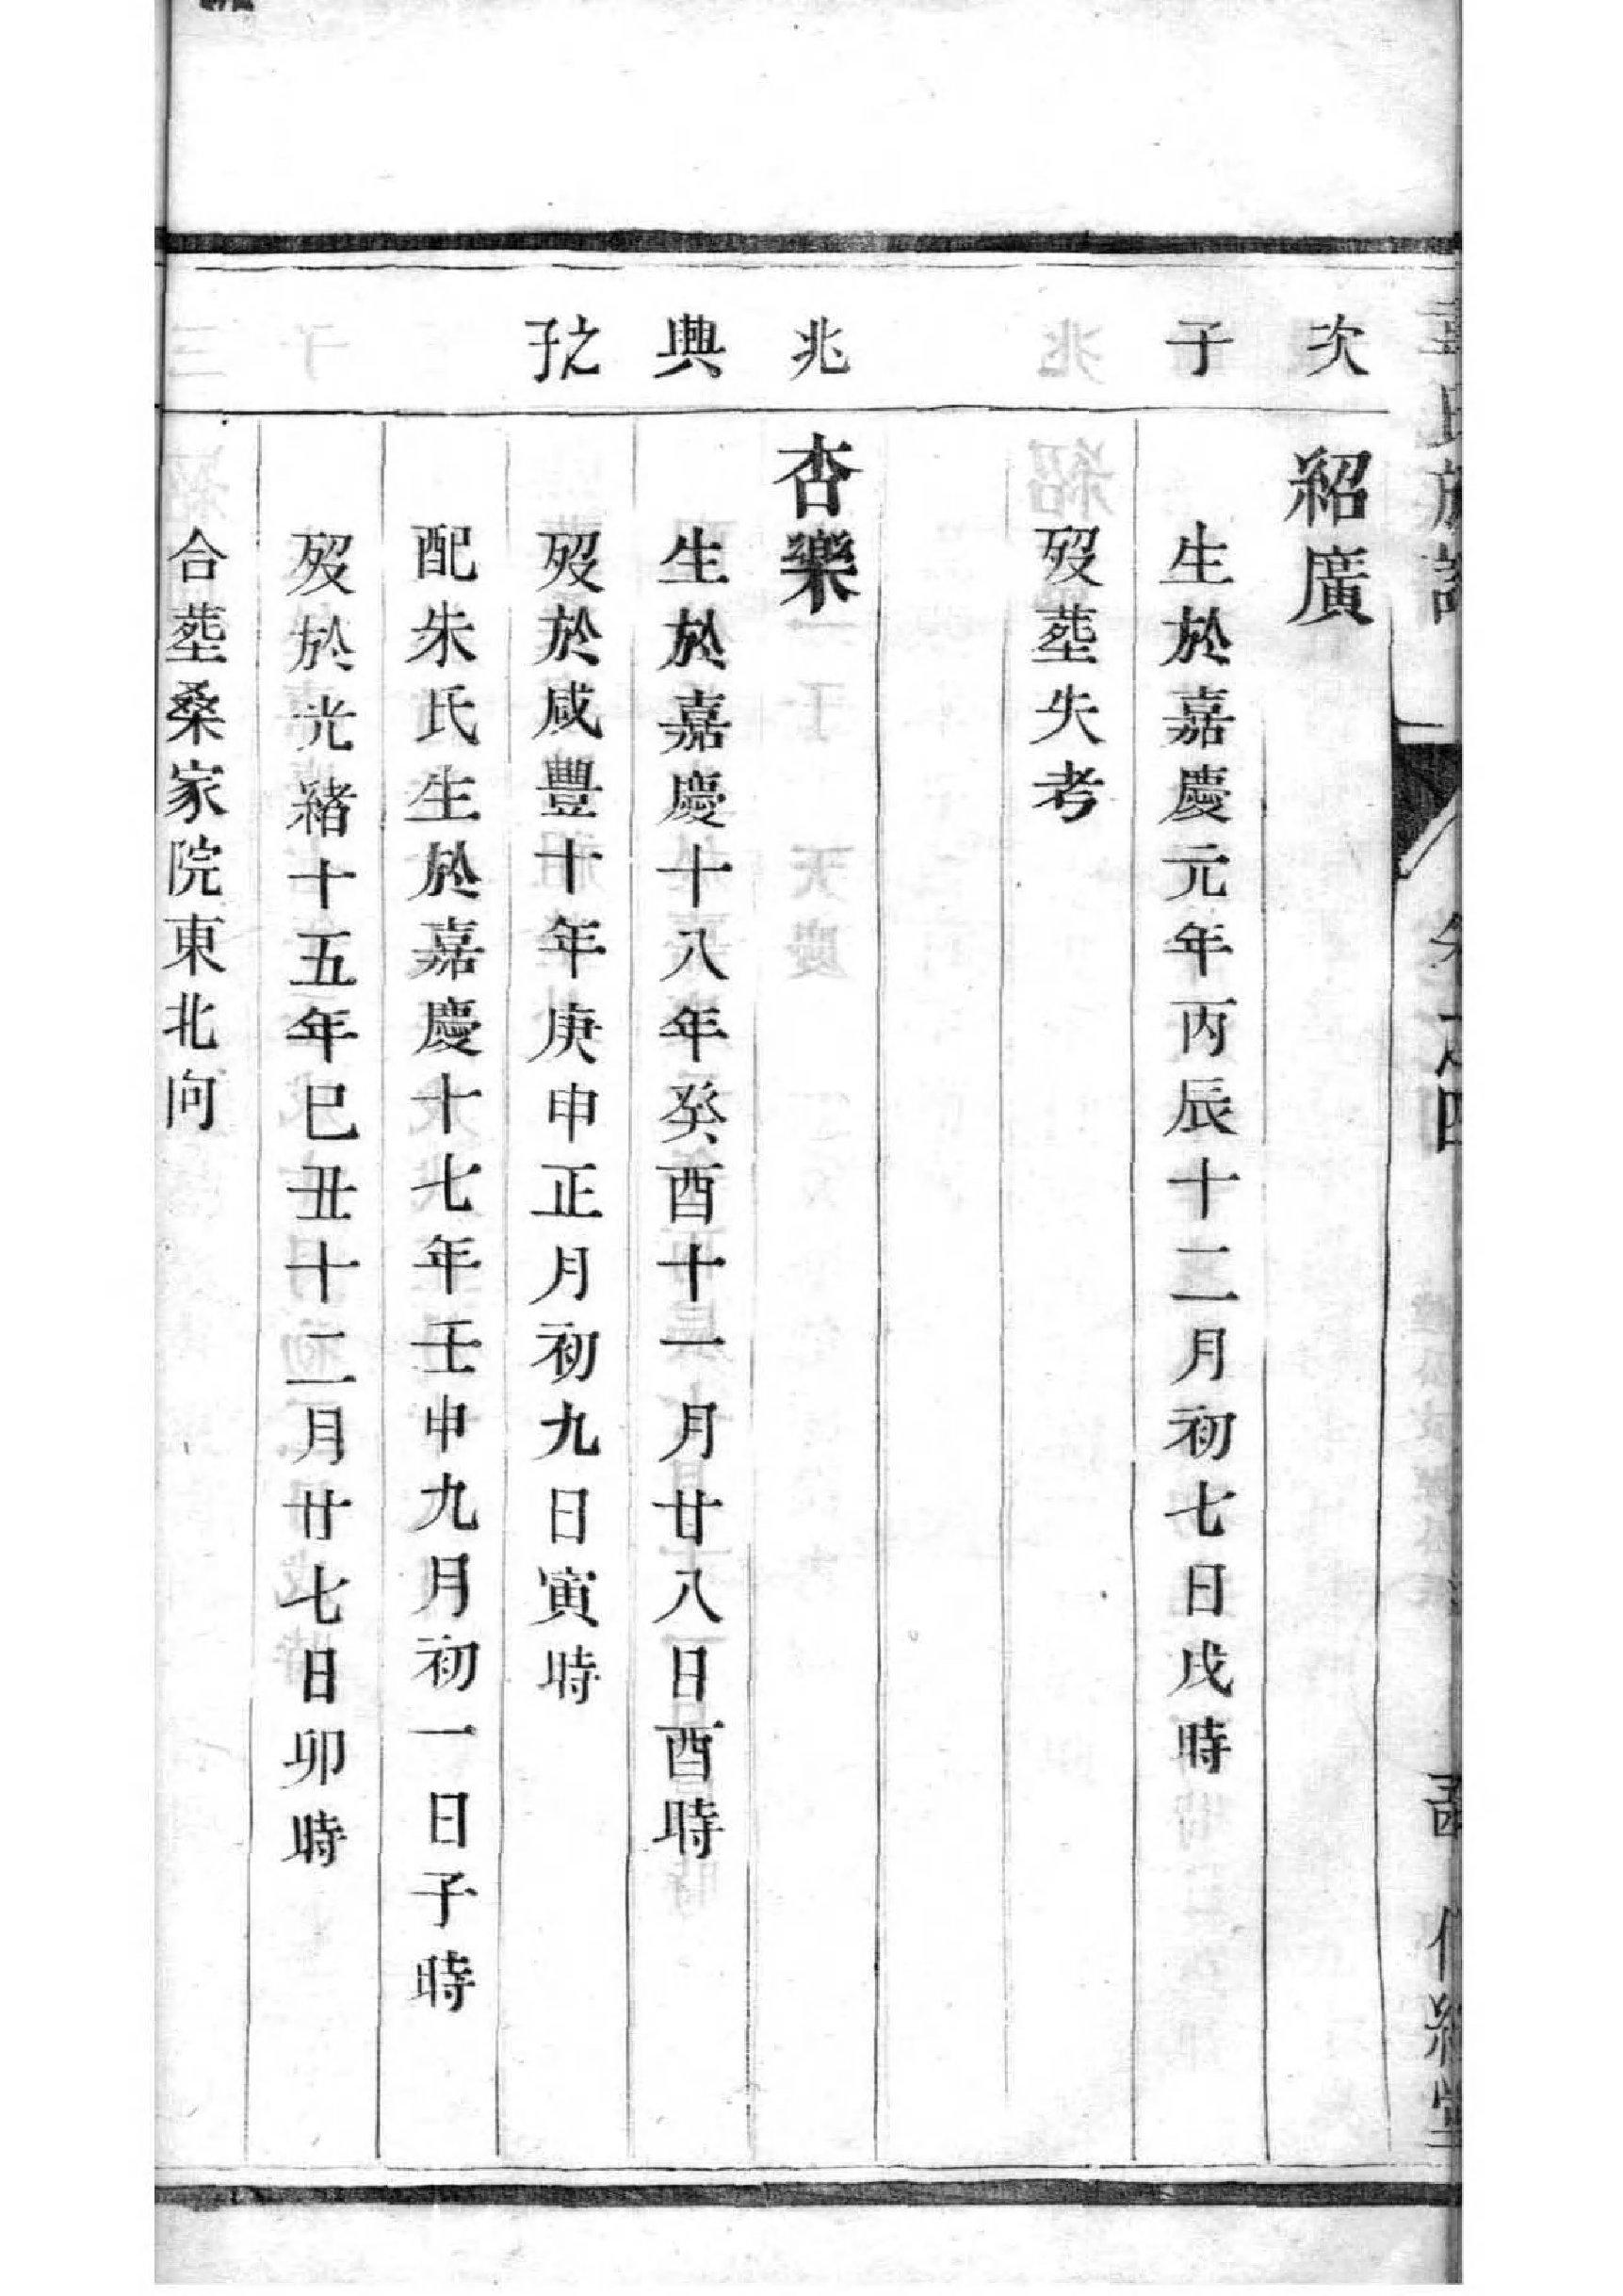 氏族譜
四
次
紹廣
子
生於嘉慶元年丙辰十二月初七日戌時
歿塟失考
兆
杏樂
典
生於嘉慶十八年癸酉十一月廿八日酉時
之子
歿於咸豐十年庚申正月初九日寅時
配朱氏生於嘉慶十七年壬申九月初一日子時
歿於光緒十五年巳丑十二月廿七日卯時
合塟桑家院東北向